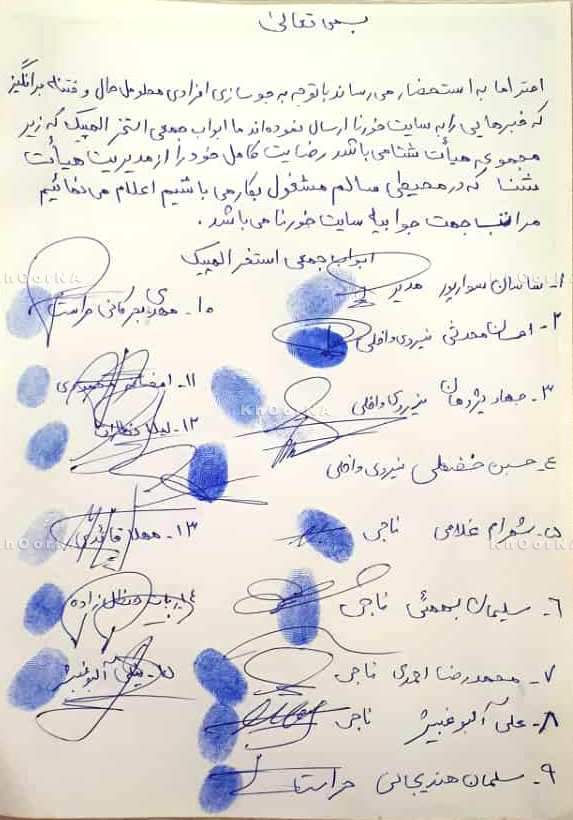 بسمه تعالی
احتراما به استحضار می رساند باتوجه به جوسازی افرادی معلوم الحال و فتنه برانگیز
که خبرهایی را به سایت خورنا ارسال نموده اند ما ابواب جمعی استخر المپیک که زیر
مجموعه هیأت شنا می باشد رضایت کامل خود را از مدیریت هیأت
شنا که در محیطی سالم مشغول بکار می باشیم اعلام می نمائیم
مراتب جهت جوابیه سایت خورنا می باشد.
ابواب جمعی استخر المپیک
۱- ساسان سوارپور مدیر
۲- احسان محدثی نیروی داخلی
۳- جهاد پژوهان نیروی داخلی
٤- حسین نیروی داخلی
۵- شهرام غلامی ناجی
٦- سلیمان بهمئی ناجی
۷- محمدرضا احمدی ناجی
۸- علی آلبوغبیش ناجی
۹- سلمان هندیجانی حراست
۱۰- مهدی حراست
۱۱-
۱۲- لیلا
۱۳- قائدی
۱٤- زاده
۱۵- آلبوغبیش
KhOorNA
KhOorNA
KhOorNA
KhOorNA
KhOorNA